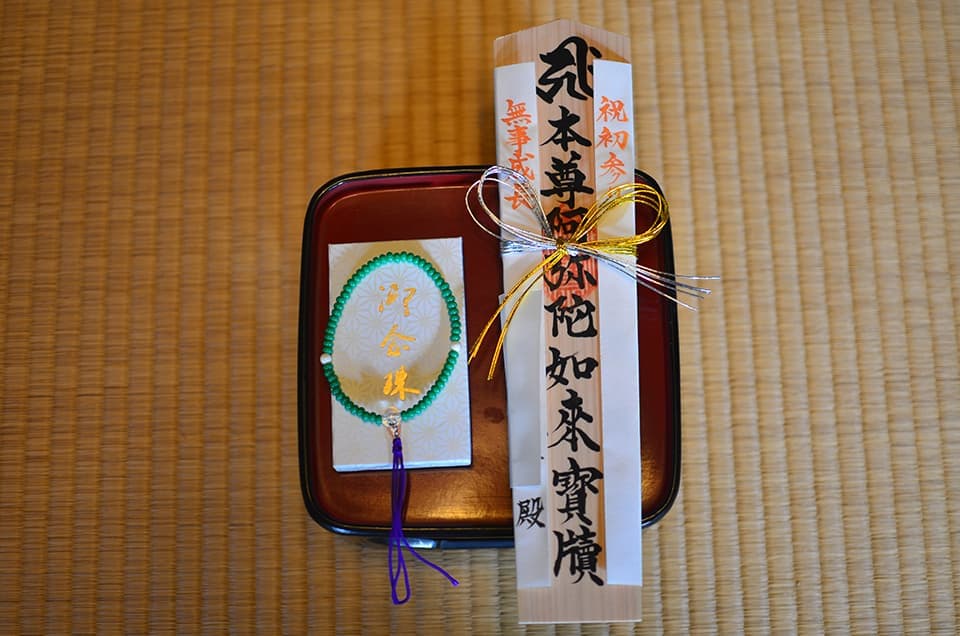 祝初参
本尊阿弥陀如來寶牘
無事成長
殿
御念珠